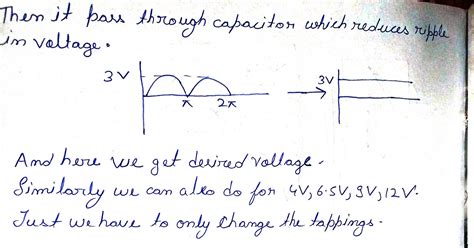 Then it pass through capacitor which reduces ripple
in voltage.
3V
π 2π
3V
And here we get desired voltage.
Similarly we can also do for 4V, 6.5V, 9V, 12V.
Just we have to only change the tappings.